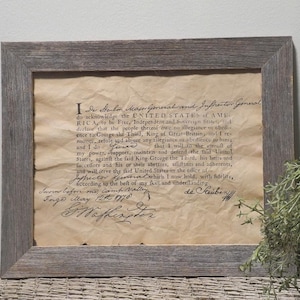 I De Stuben Major General and Inspector General
do acknowledge the UNITED STATES of AME-
RICA, to be Free, Independent and Sovereign States, and
declare that the people thereof owe no allegiance or obedi-
ence to George the Third, King of Great-Britain; and I re-
nounce, refuse and abjure any allegiance or obedience to
him; and I do Swear that I will to the utmost of
my power, support, maintain and defend the said United
States, against the said King George the Third, his heirs and
successors and his or their abettors, assistants and adherents,
and will serve the said United States in the office of
Inspector General which I now hold, with fidelity,
according to the best of my skill and understanding.
Sworn before me Camp Valley
Forge May 1778
de Steuben
G Washington